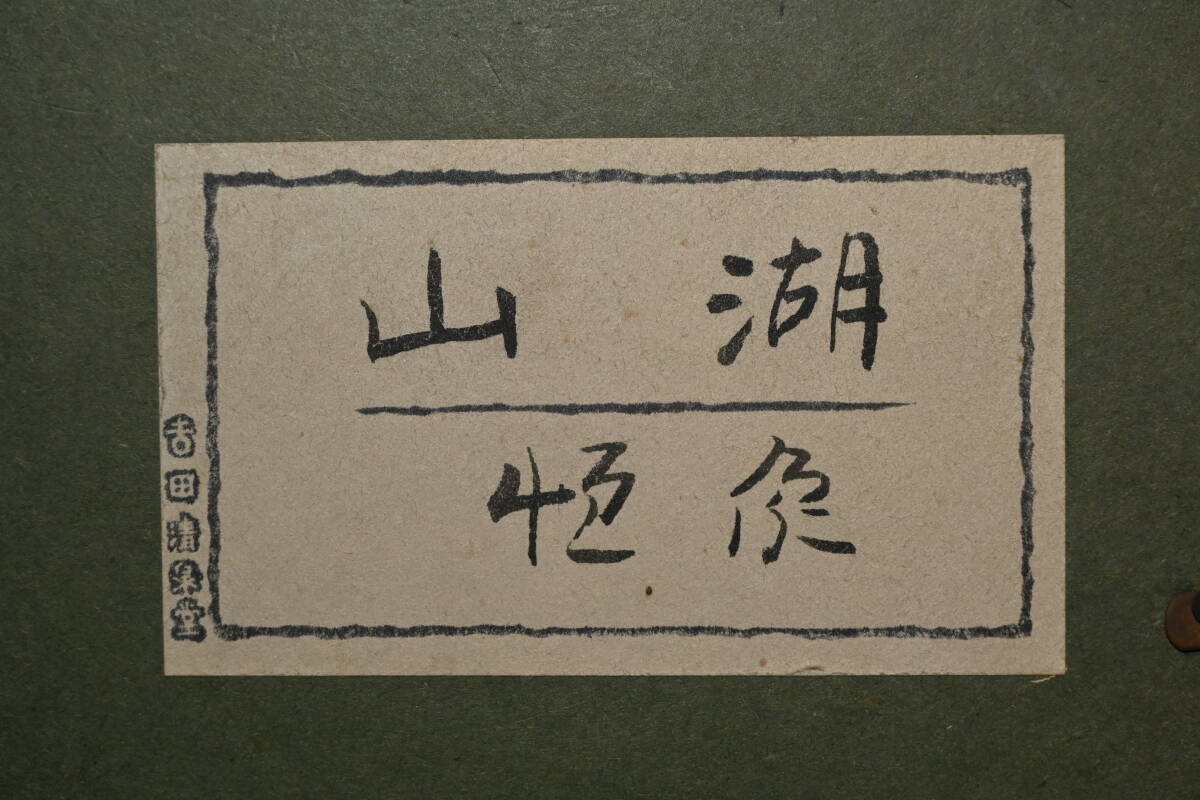 湖山
恒
吉田清泉堂